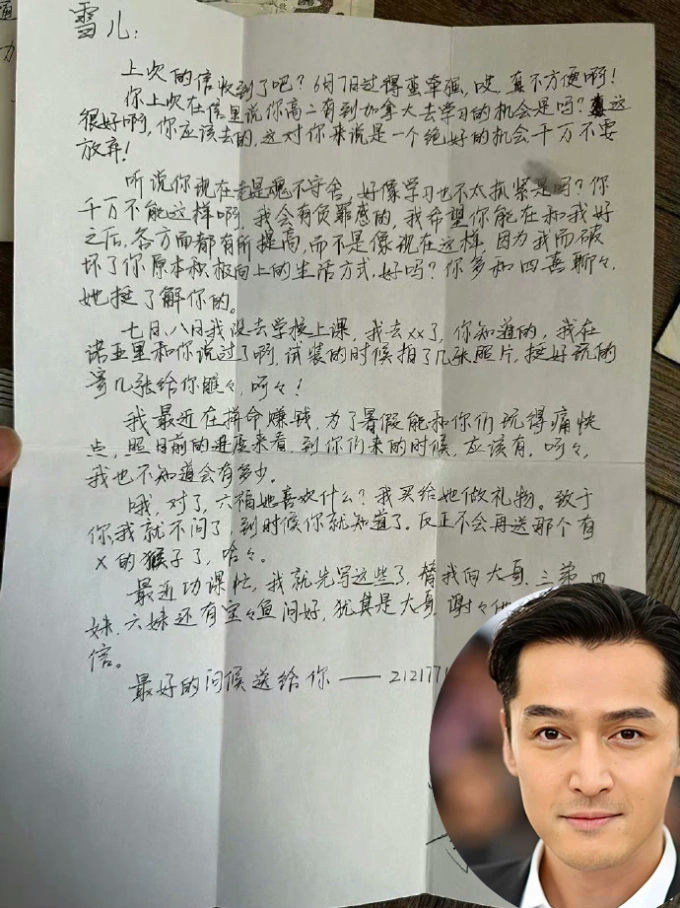 雪儿：
上次的信收到了吧？6月7日过得蛮牵强，哎，真不方便啊！
你上次在信里说你高二有到加拿大去学习的机会是吗？这
很好啊，你应该去的，这对你来说是一个绝好的机会千万不要
放弃！
听说你现在老是魂不守舍，好像学习也不太抓紧是吗？你
千万不能这样啊，我会有负罪感的，我希望你能在和我好
之后，各方面都有所提高，而不是像现在这样，因为我而破
坏了你原本积极向上的生活方式，好吗？你多和四喜聊々，
她挺了解你的。
七日、八日我没去学校上课，我去xx了，你知道的，我在
诺亚里和你说过了啊，试装的时候拍了几张照片，挺好玩的
寄几张给你瞧々，呵々！
我最近在拼命赚钱，为了暑假能和你们玩得痛快
点，照目前的进度来看，到你们来的时候，应该有，呵々，
我也不知道会有多少。
哦，对了，六福她喜欢什么？我买给她做礼物。致于
你我就不问了，到时候你就知道了，反正不会再送那个有
X的猴子了，哈々。
最近功课忙，我就先写这些了，替我向大哥、三弟、四
妹、六妹还有宝々鱼问好，犹其是大哥，谢々
信。
最好的问候送给你——212177